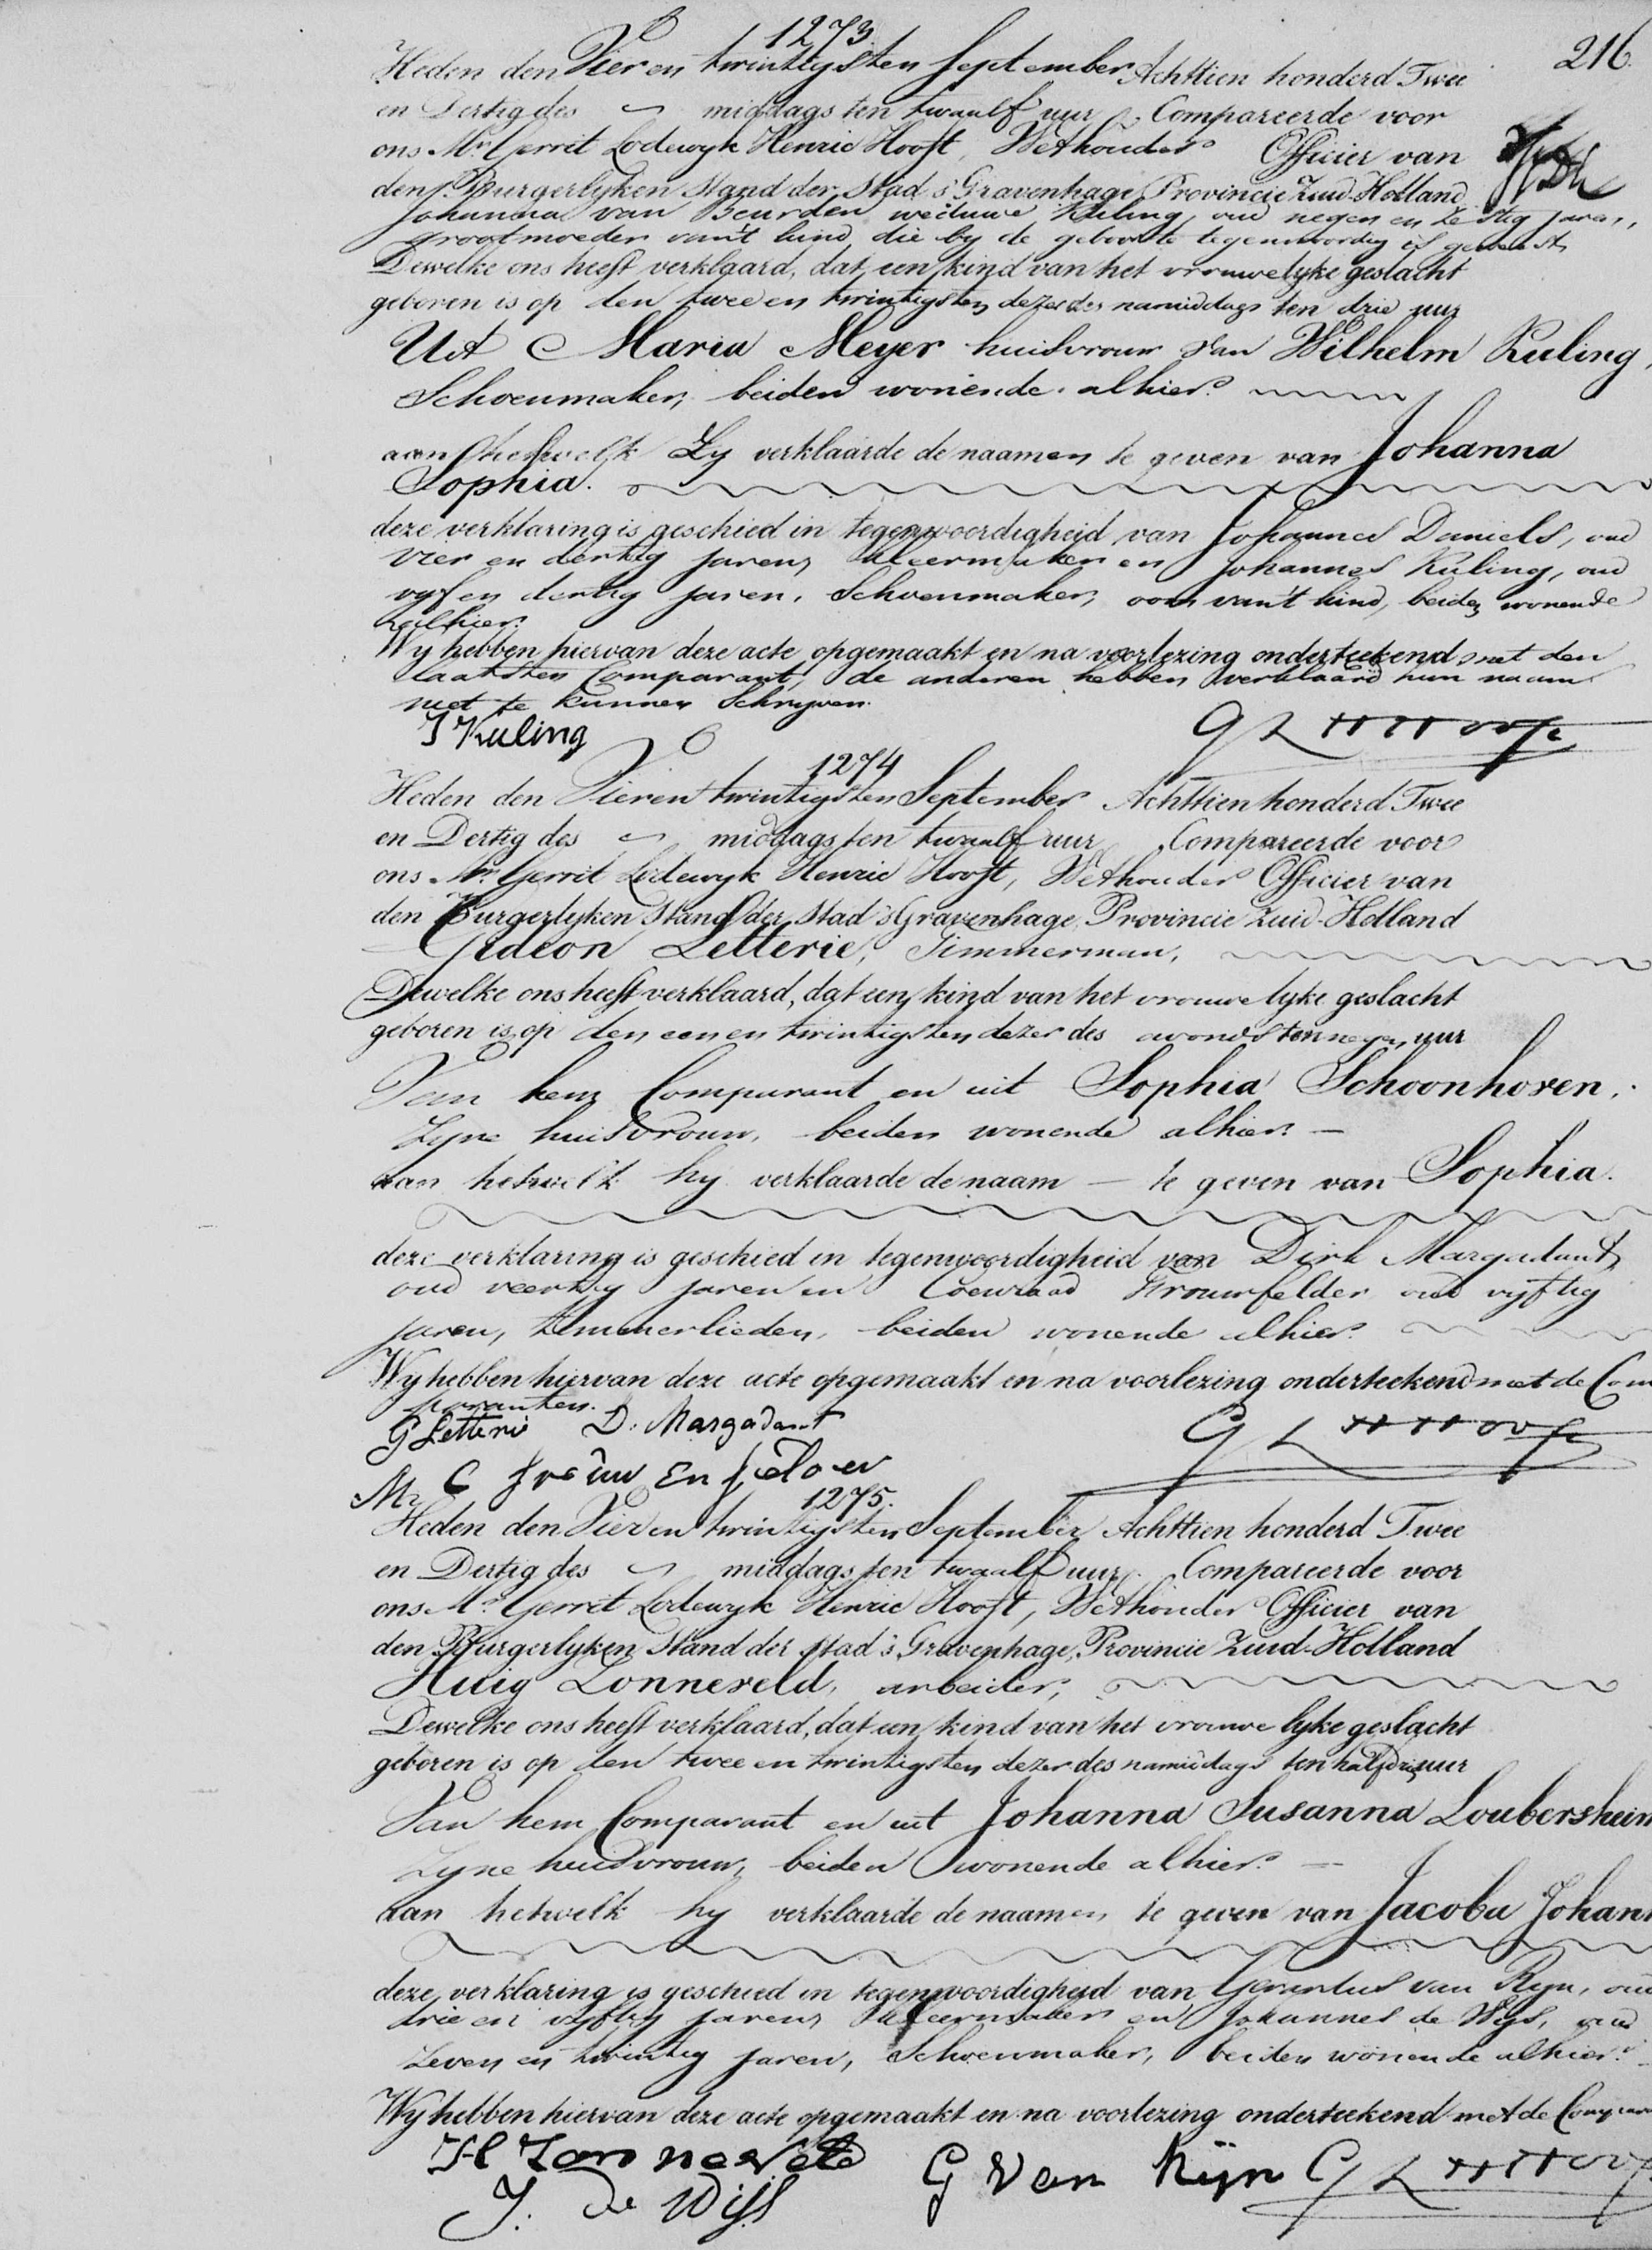 1273.
216.
Heden den Vier en twintigsten September Achttien honderd Twee
en Dertig des middags ten twaalf uur, Compareerde voor
ons Mr. Gerrit Lodewyk Henric Hooft, Wethouder Officier van
den Burgerlyken Stand der Stad 's Gravenhage, Provincie Zuid-Holland
Johanna van Beurden weduwe Kuling, oud negen en zestig jaren,
grootmoeder van't kind, die by de geboorte tegenwoordig is geweest,
Dewelke ons heeft verklaard, dat een kind van het vrouwelyke geslacht
geboren is op den twee en twintigsten dezer des namiddags ten drie uur
Uit Maria Meyer huisvrouw van Wilhelm Kuling,
Schoenmaker, beiden wonende alhier.
aan hetwelk Zy verklaarde de naamen te geven van Johanna
Sophia.
deze verklaring is geschied in tegenwoordigheid van Johannes Daniels, oud
vier en dertig jaren, kleermaker en Johannes Kuling, oud
vyf en dertig jaren, Schoenmaker, oom van't kind, beiden wonende
alhier.
Wy hebben hiervan deze acte opgemaakt en na voorlezing onderteekend met den
laatsten Comparant, de anderen hebben verklaard hun naam
niet te kunnen Schryven.
J Kuling GLHHooft
1274
Heden den Vier en twintigsten September Achttien honderd Twee
en Dertig des middags ten twaalf uur, Compareerde voor
ons Mr. Gerrit Lodewyk Henric Hooft, Wethouder Officier van
den Burgerlyken Stand der Stad 's Gravenhage, Provincie Zuid-Holland
Gideon Letterie, Timmerman,
Dewelke ons heeft verklaard, dat een kind van het vrouwelyke geslacht
geboren is op den een en twintigsten dezer des avonds ten negen uur
Van hem Comparant en uit Sophia Schoonhoven,
Zyne huisvrouw, beiden wonende alhier. —
aan hetwelk hy verklaarde de naam — te geven van Sophia.
deze verklaring is geschied in tegenwoordigheid van Dirk Margadant,
oud veertig jaren en Coenraad oud vyftig
jaren, timmerlieden, beiden wonende alhier.
Wy hebben hiervan deze acte opgemaakt en na voorlezing onderteekend met de Com
paranten.
G Letterie D. Margadant GLHHooft
1275.
Heden den Vier en twintigsten September Achttien honderd Twee
en Dertig des middags ten twaalf uur, Compareerde voor
ons Mr. Gerrit Lodewyk Henric Hooft, Wethouder Officier van
den Burgerlyken Stand der Stad 's Gravenhage, Provincie Zuid-Holland
Huig Zonneveld, arbeider,
Dewelke ons heeft verklaard, dat een kind van het vrouwelyke geslacht
geboren is op den twee en twintigsten dezer des namiddags ten half drie uur
Van hem Comparant en uit Johanna Susanna Loubersheim
Zyne huisvrouw, beiden wonende alhier. —
aan hetwelk hy verklaarde de naamen te geven van Jacoba Johann
deze verklaring is geschied in tegenwoordigheid van Gerardus van Ryn, oud
drie en vyftig jaren, kleermaker en Johannes de Wys, oud
Zeven en twintig jaren, Schoenmaker, beiden wonende alhier.
Wy hebben hiervan deze acte opgemaakt en na voorlezing onderteekend met de Compara
H Zonneveld G Van Rijn GLHHooft
J. de Wijs